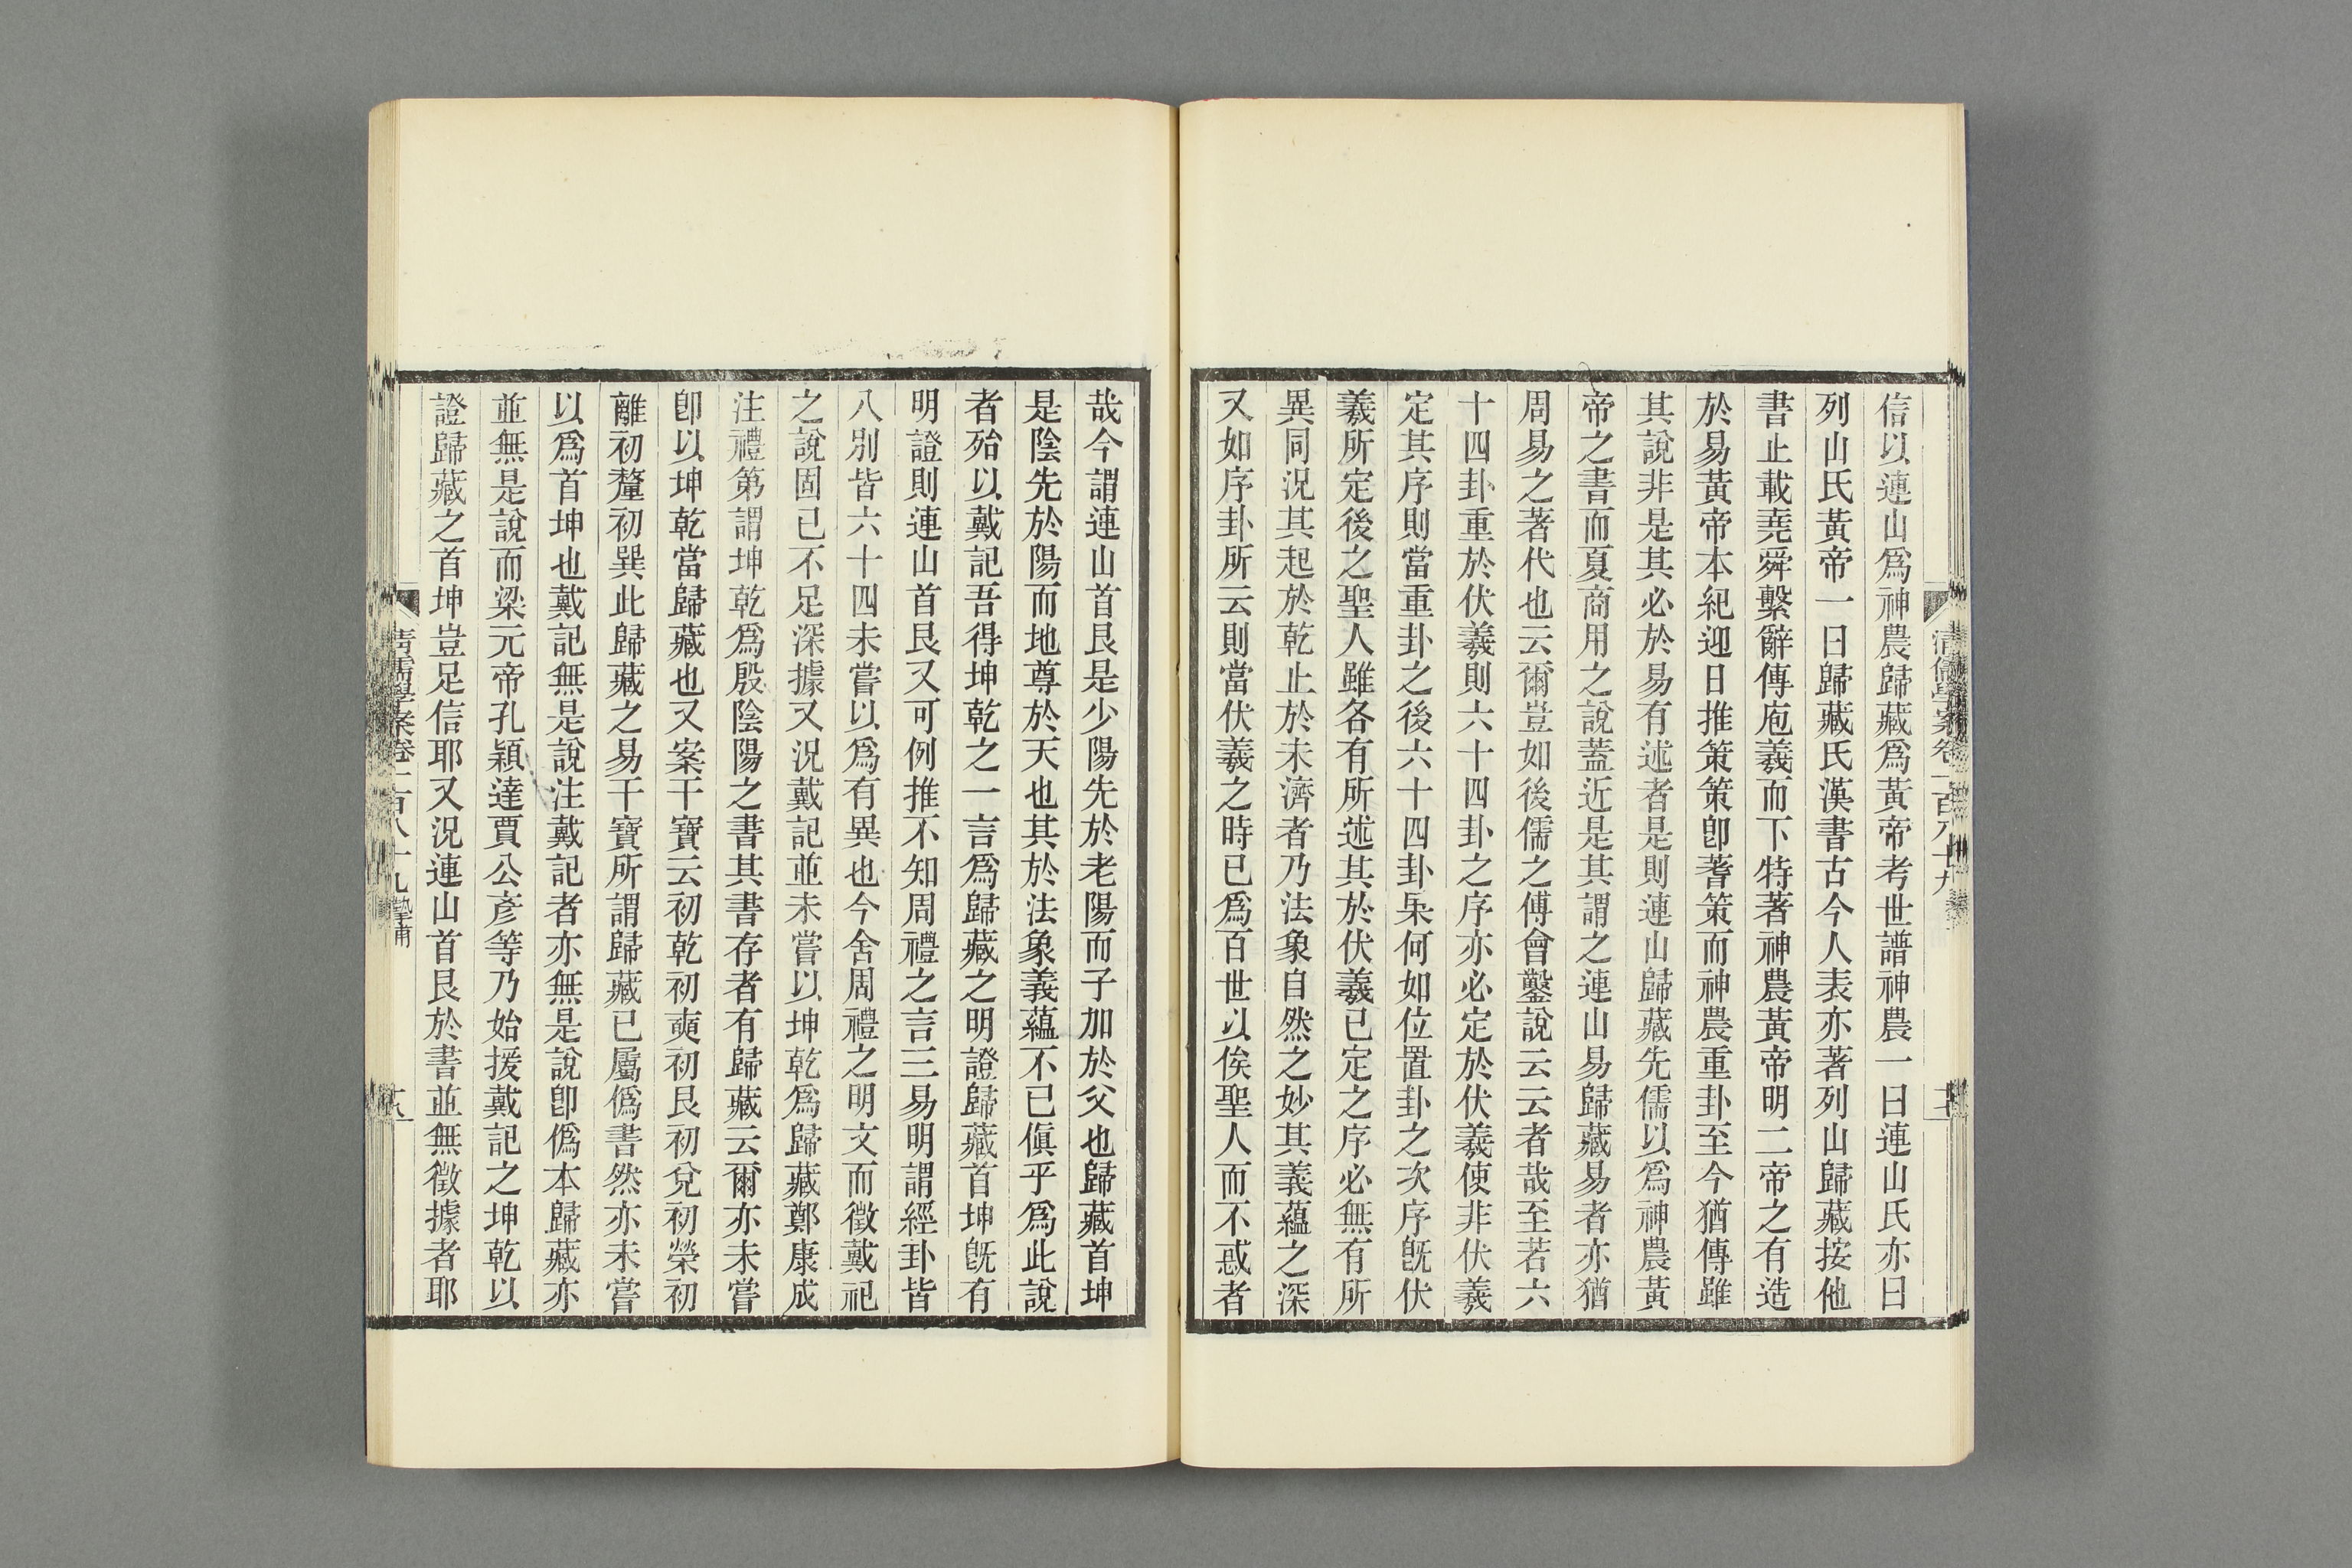 信以連山爲神農歸藏爲黃帝考世譜神農一曰連山氏亦曰
列山氏黃帝一曰歸藏氏漢書古今人表亦著列山歸藏按他
書止載堯舜繫辭傳庖羲而下特著神農黃帝明二帝之有造
於易黃帝本紀迎日推策策卽蓍策而神農重卦至今猶傳雖
其說非是其必於易有述者是則連山歸藏先儒以爲神農黃
帝之書而夏商用之說蓋近是其謂之連山易歸藏易者亦猶
周易之著代也云爾豈如後儒之傅會鑿說云云者哉至若六
十四卦重於伏羲則六十四卦之序亦必定於伏羲使非伏羲
定其序則當重卦之後六十四卦杲何如位置卦之次序旣伏
羲所定後之聖人雖各有所述其於伏羲已定之序必無有所
異同況其起於乾止於未濟者乃法象自然之妙其義蘊之深
又如序卦所云則當伏羲之時已爲百世以俟聖人而不惑者
清儒學案卷一百八十九
哉今謂連山首艮是少陽先於老陽而子加於父也歸藏首坤
是陰先於陽而地尊於天也其於法象義蘊不已傎乎爲此說
者殆以戴記吾得坤乾之一言爲歸藏之明證歸藏首坤旣有
明證則連山首艮又可例推不知周禮之言三易明謂經卦皆
八別皆六十四未嘗以爲有異也今舍周禮之明文而徵戴祀
之說固已不足深據又況戴記並未嘗以坤乾爲歸藏鄭康成
注禮第謂坤乾爲殷陰陽之書其書存者有歸藏云爾亦未嘗
卽以坤乾當歸藏也又案干寶云初乾初奭初艮初兌初犖初
離初釐初巽此歸藏之易干寶所謂歸藏已屬僞書然亦未嘗
以爲首坤也戴記無是說注戴記者亦無是說卽僞本歸藏亦
並無是說而梁元帝孔穎達賈公彥等乃始援戴記之坤乾以
證歸藏之首坤豈足信耶又況連山首艮於書並無徵據者耶
清儒學案卷一百八十九